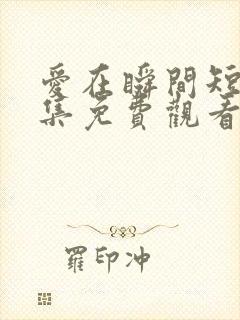 愛在瞬間短
集免費觀看
羅印冲